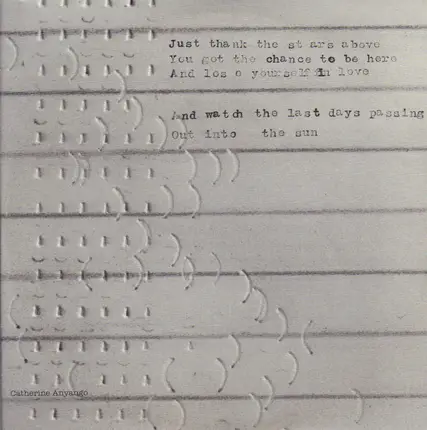 Just thank the st ars above
You got the chance to be here
And los e yourself in love
And watch the last days passing
Out into the sun
Catherine Anyango